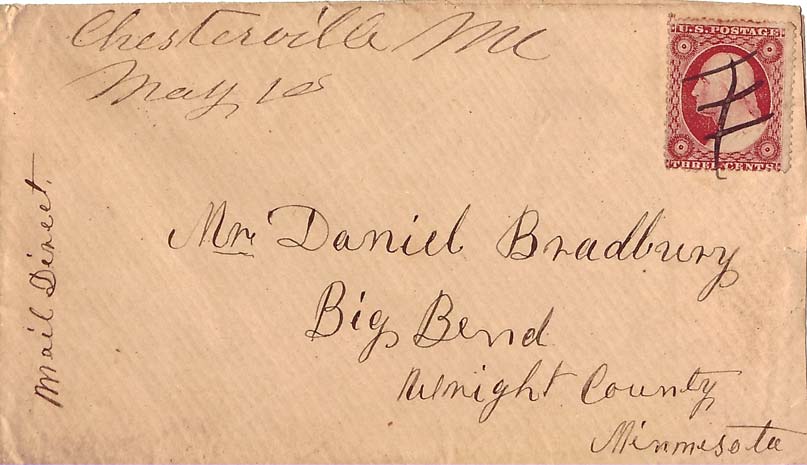 Chesterville Me
May 18
U.S. POSTAGE
THREE CENTS
Mail Direct.
Mr. Daniel Bradbury
Big Bend
Wright County
Minnesota